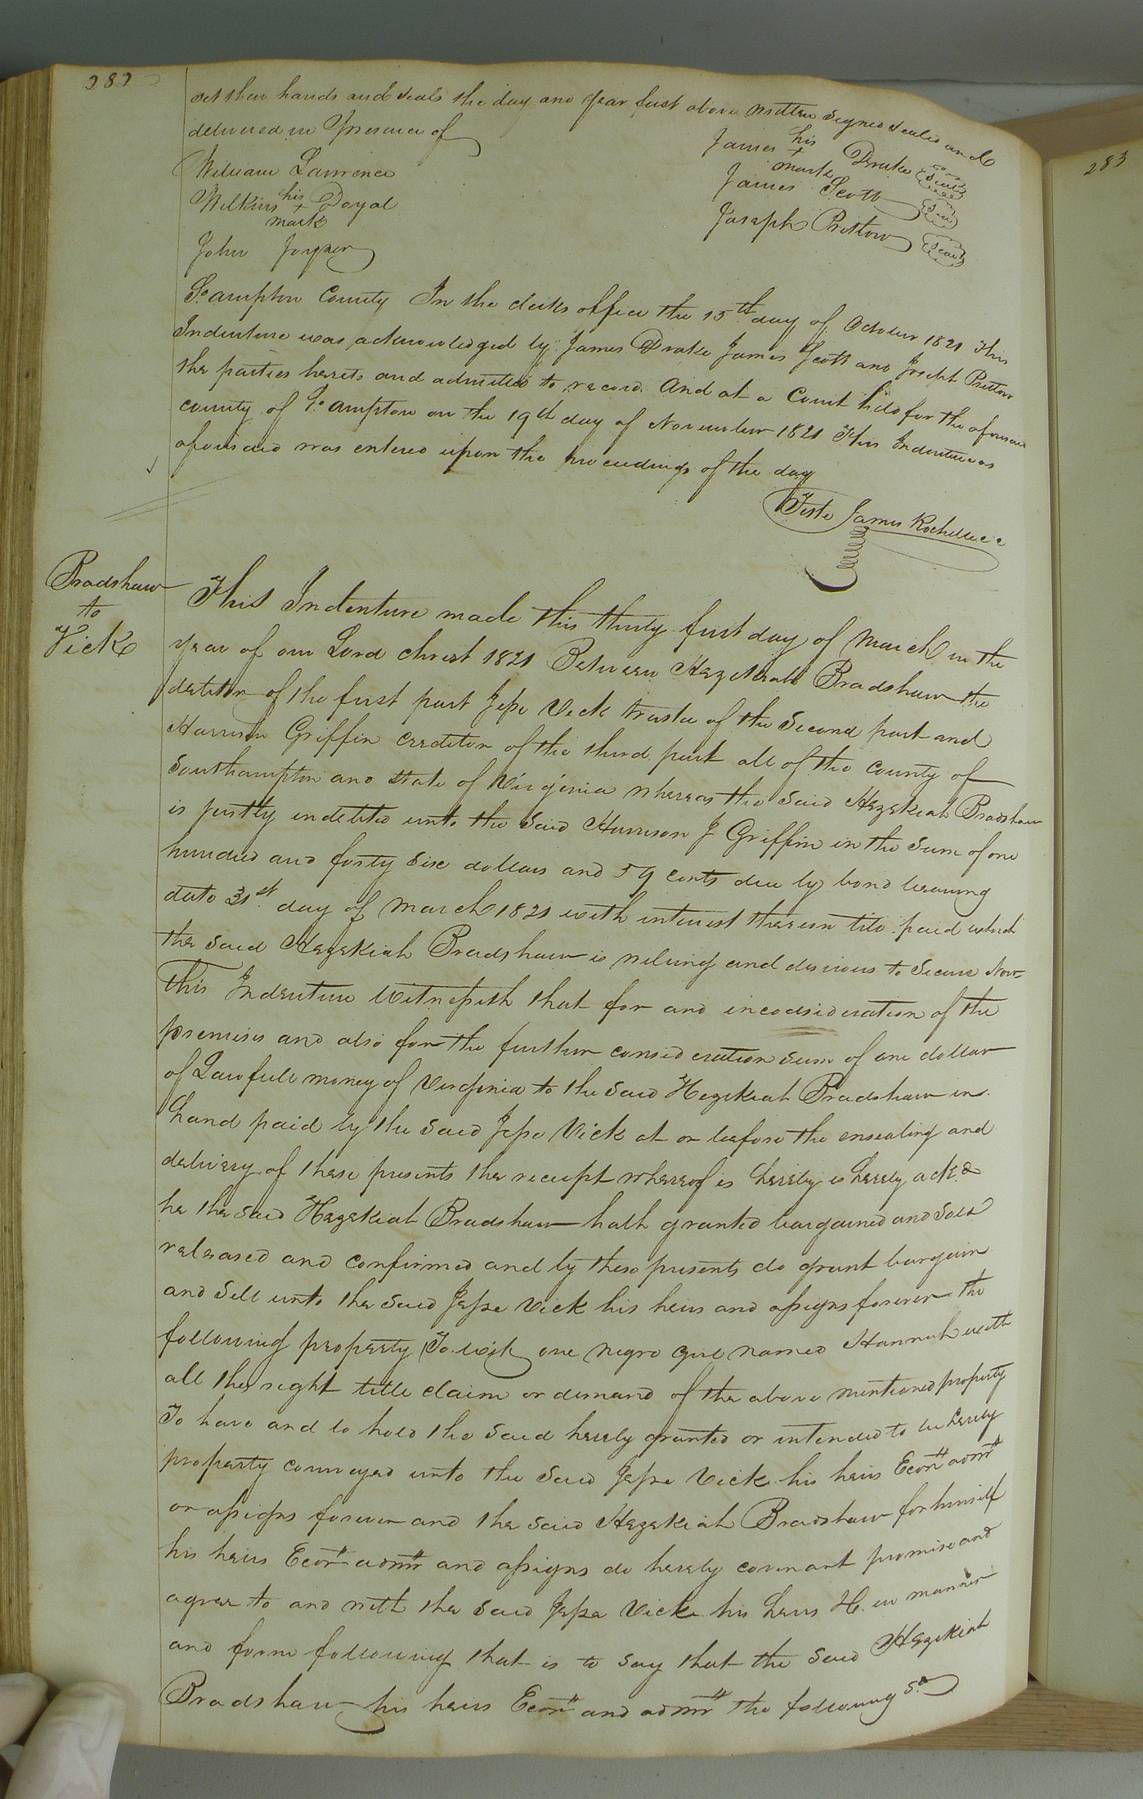 282
set their hands and seals the day and year first above written Signed Sealed and
delivered in presence of
James his Drake Seal
+
mark
William Lawrence
James Scott Seal
Wilkins his Doyal
+
mark
Joseph Bristow Seal
John Joyner
So.ampton County In the clerks office the 15th day of October 1821 This
Indenture was acknowledged by James Drake James Scott and Joseph Bristow
the parties hereto and admitted to record And at a Court held for the aforesaid
county of So.ampton on the 19th day of November 1821 This Indenture as
aforesaid was entered upon the proceedings of the day
Teste James Rochelle cc
Bradshaw
to
Vick
This Indenture made this thirty first day of March in the
year of our Lord christ 1821 Between Hezekiah Bradshaw the
debtor of the first part Jesse Vick trustee of the Second part and
Harrison Griffin creditor of the third part all of the county of
Southampton and state of Virginia whereas the Said Hezekiah Bradshaw
is justly indebted unto the Said Harrison J Griffin in the Sum of one
hundred and forty Six dollars and 59 cents due by bond bearing
date 31st day of March 1821 with interest thereon till paid which
the said Hezekiah Bradshaw is willing and desirous to Secure Now
This Indenture Witnesseth that for and inconsideration of the
premises and also for the further consideration Sum of one dollar
of Lawfull money of Virginia to the Said Hezekiah Bradshaw in
hand paid by the Said Jesse Vick at or before the ensealing and
delivery of these presents the receipt whereof is hereby is hereby ackd
he the said Hezekiah Bradshaw hath granted bargained and Sold
released and confirmed and by these presents do grant bargain
and Sell unto the Said Jesse Vick his heirs and assigns forever the
following property To wit, one negro girl named Hannah with
all the right title claim or demand of the above mentioned property
To have and to hold the Said hereby granted or intended to be hereby
property conveyed unto the Said Jesse Vick his heirs Ecors admrs
or assigns forever and the said Hezekiah Bradshaw for himself
his heirs Ecors admrs and assigns do hereby covenant promise and
agree to and with the Said Jesse Vick his heirs &c. in manner
and form following that is to Say that the Said Hezekiah
Bradshaw his heirs Ecors and admrs the following Sd
283